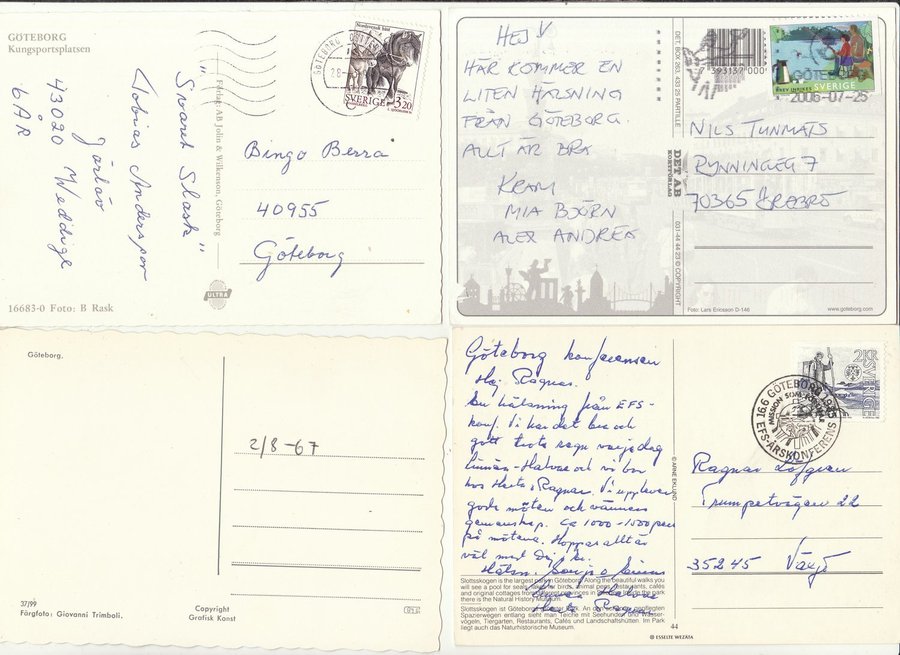 GÖTEBORG
Kungsportsplatsen
"Svaret Slask"
Tobias Anderspor
Järlöv
43020 Weddige
6 ÅR
16683-0 Foto: B Rask
Förlag: AB John & Wilkenson, Göteborg
ULTRA
GÖTEBORG
Nordsvensk häst
SVERIGE 3.20
Bingo Berra
40955
Göteborg
HEJ
HÄR KOMMER EN
LITEN HÄLSNING
FRÅN GÖTEBORG.
ALLT ÄR BRA
KRAM
MIA BJÖRN
ALEX ANDREA
DET, BOX 263, 433 25 PARTILLE
DET AB
KORTFÖRLAG
031-44 44 23 © COPYRIGHT
7 393137 000
GÖTEBORG
2006-07-25
BREV INRIKES SVERIGE
NILS TUNMATS
RYNNINGEG 7
70365 ÖREBRO
Foto: Lars Ericsson D-146
www.goteborg.com
Göteborg.
2/8-67
37/99
Färgfoto: Giovanni Trimboli.
Copyright
Grafisk Konst
Göteborg konferensen
Hej Ragnar.
En hälsning från EFS-
konf. Vi har det bra och
gott trots regn varje dag
och vi bor
hos Herta o Ragnar. Vi upplever
goda möten och vännens
gemenskap. Ca 1000-1500 pers
på mötena. Hoppas allt är
väl med Dig
Slottsskogen is the largest park in Göteborg. Along the beautiful walks you
will see a pool for seals, birds, animal pens, restaurants, cafés
and original cottages from different provinces in Inside the park
there is the Natural History Museum.
Slottsskogen ist Göteborgs Park. An den gepflegten
Spazierwegen entlang sieht man Teiche mit Seehunden und Wasser-
vögeln, Tiergarten, Restaurants, Cafés und Landschaftshütten. Im Park
liegt auch das Naturhistorische Museum.
© ARNE EKLUND
2 KR
SVERIGE
16.6 GÖTEBORG 1985
MISSION SOM
EFS-ÅRSKONFERENS
Ragnar Löfgren
Trumpetvägen 22
35245 Växjö
44
© ESSELTE WEZÄTA